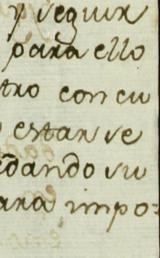 y seguir
para ello
tro concu
estar se
dando su
ara impo-